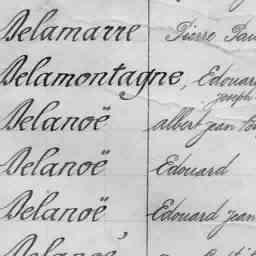 Delamarre Pierre Pau
Delamontagne, Edouard
joseph
Delanoë albert jean
Delanoë Edouard
Delanoë Edouard jean